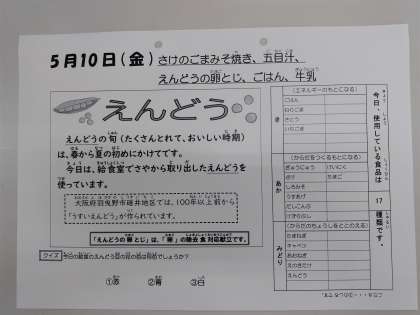 5月10日(金) さけのごまみそ焼き、五目汁、
えんどうの卵とじ、ごはん、牛乳
えんどう
えんどうの旬(たくさんとれて、おいしい時期)
は、春から夏の初めにかけてです。
今日は、給食室でさやから取り出したえんどうを
使っています。
大阪府羽曳野市碓井地区では、100年以上前から
「うすいえんどう」が作られています。
「えんどうの卵とじ」は、「卵」の除去食対応献立です。
クイズ 今日の給食のえんどう豆の花の色は何色でしょうか?
①赤 ②青 ③白
今日、使用している食品は 17 種類です。
き
(エネルギーのもとになる)
ごはん
ねりごま
さとう
あか
(からだをつくるもとになる)
ぎゅうにゅう けいにく
さけ たまご
しろみそ
うすあげ
だしこんぶ
けずりぶし
みどり
(からだのちょうしをととのえる)
たまねぎ
キャベツ
あおねぎ
えのきたけ
えんどう